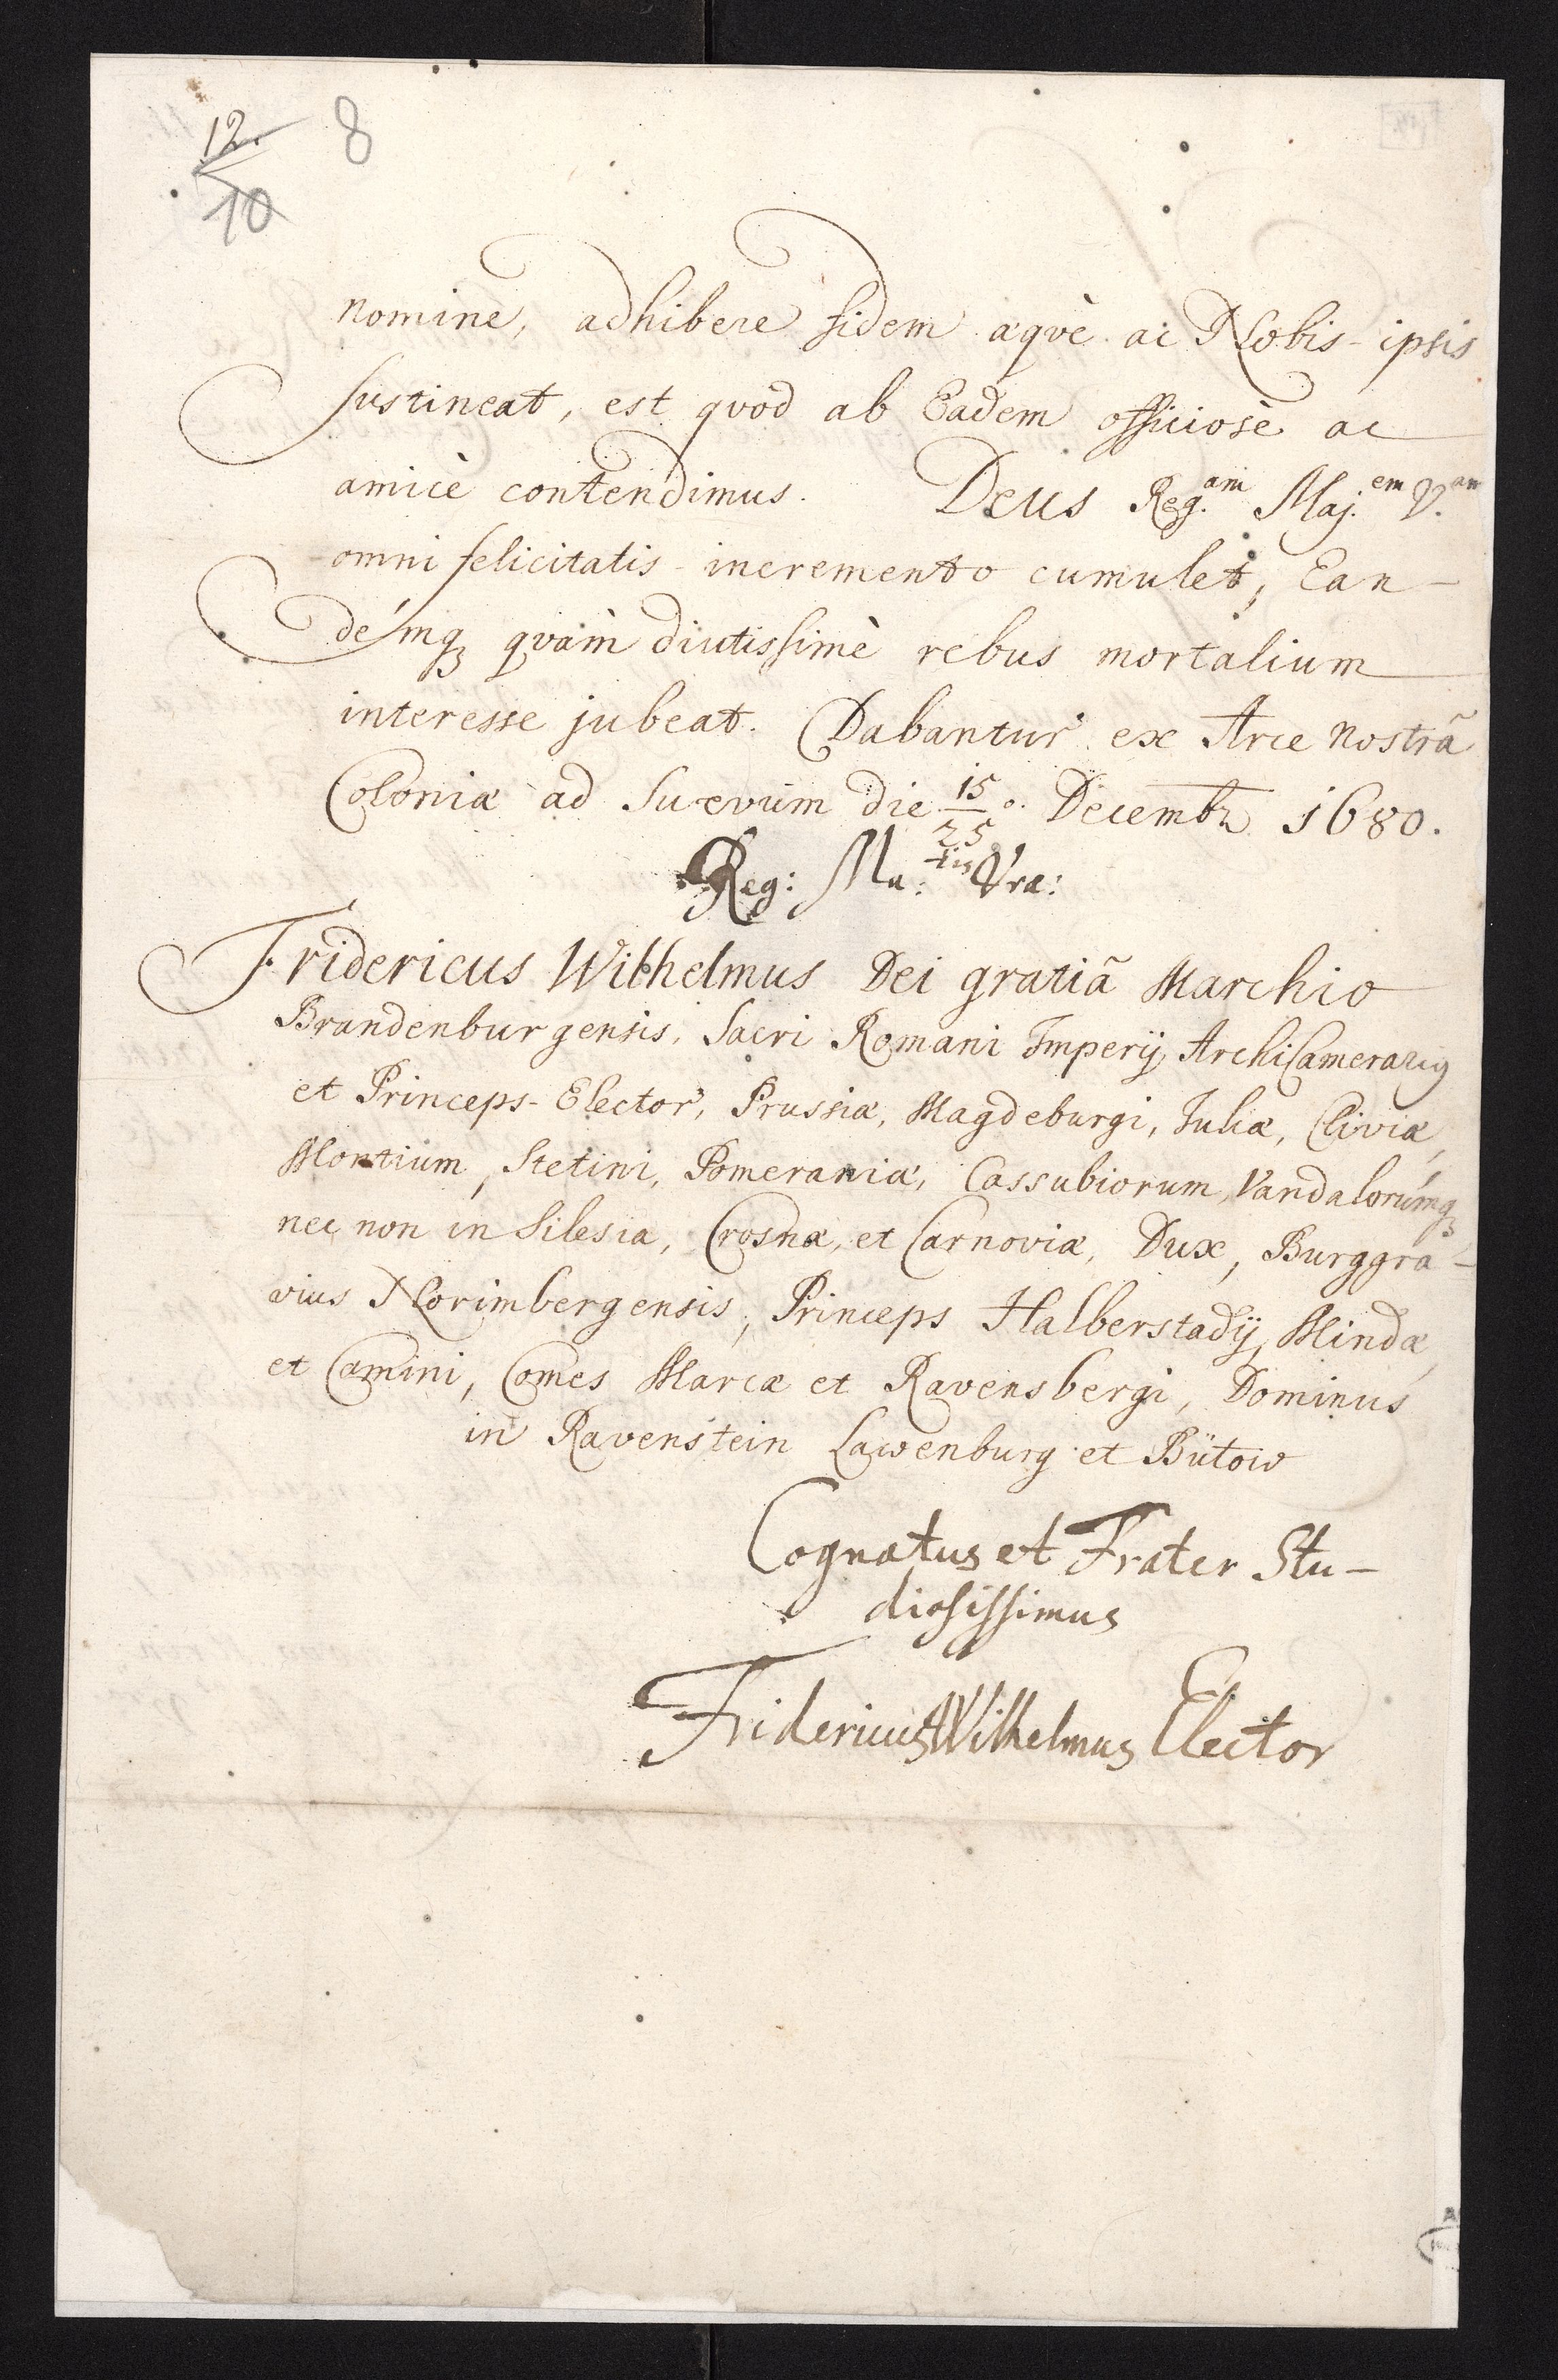 12.
10
8
nomine, adhibere fidem æqvè ac Nobis-ipsis
sustineat, est qvod ab Eadem officiosè ac
amicè contendimus. Deus Reg.am Maj.em V.am
omni felicitatis-incremento cumulet, Ean-
démq; qvàm diutissimè rebus mortalium
interesse jubeat. Dabantur ex Arce nostrâ
Coloniæ ad Suevum die 15/25 o. Decembr 1680.
Reg: Ma:tis Vra:
Fridericus Wilhelmus Dei gratiâ Marchio
Brandenburgensis, Sacri Romani Imperij Archicamerarius
et Princeps-Elector, Prussiæ, Magdeburgi, Juliæ, Cliviæ,
Montium, Stetini, Pomeraniæ, Cassubiorum, Vandalorúmq;
nec non in Silesia, Crosnæ, et Carnoviæ, Dux, Burggra-
vius Norimbergensis, Princeps Halberstadij, Mindæ,
et Camini, Comes Marcæ et Ravensbergi, Dominus
in Ravenstein Lawenburg et Bütow
Cognatus et Frater Stu-
diosissimus
Fridericus Wilhelmus Elector